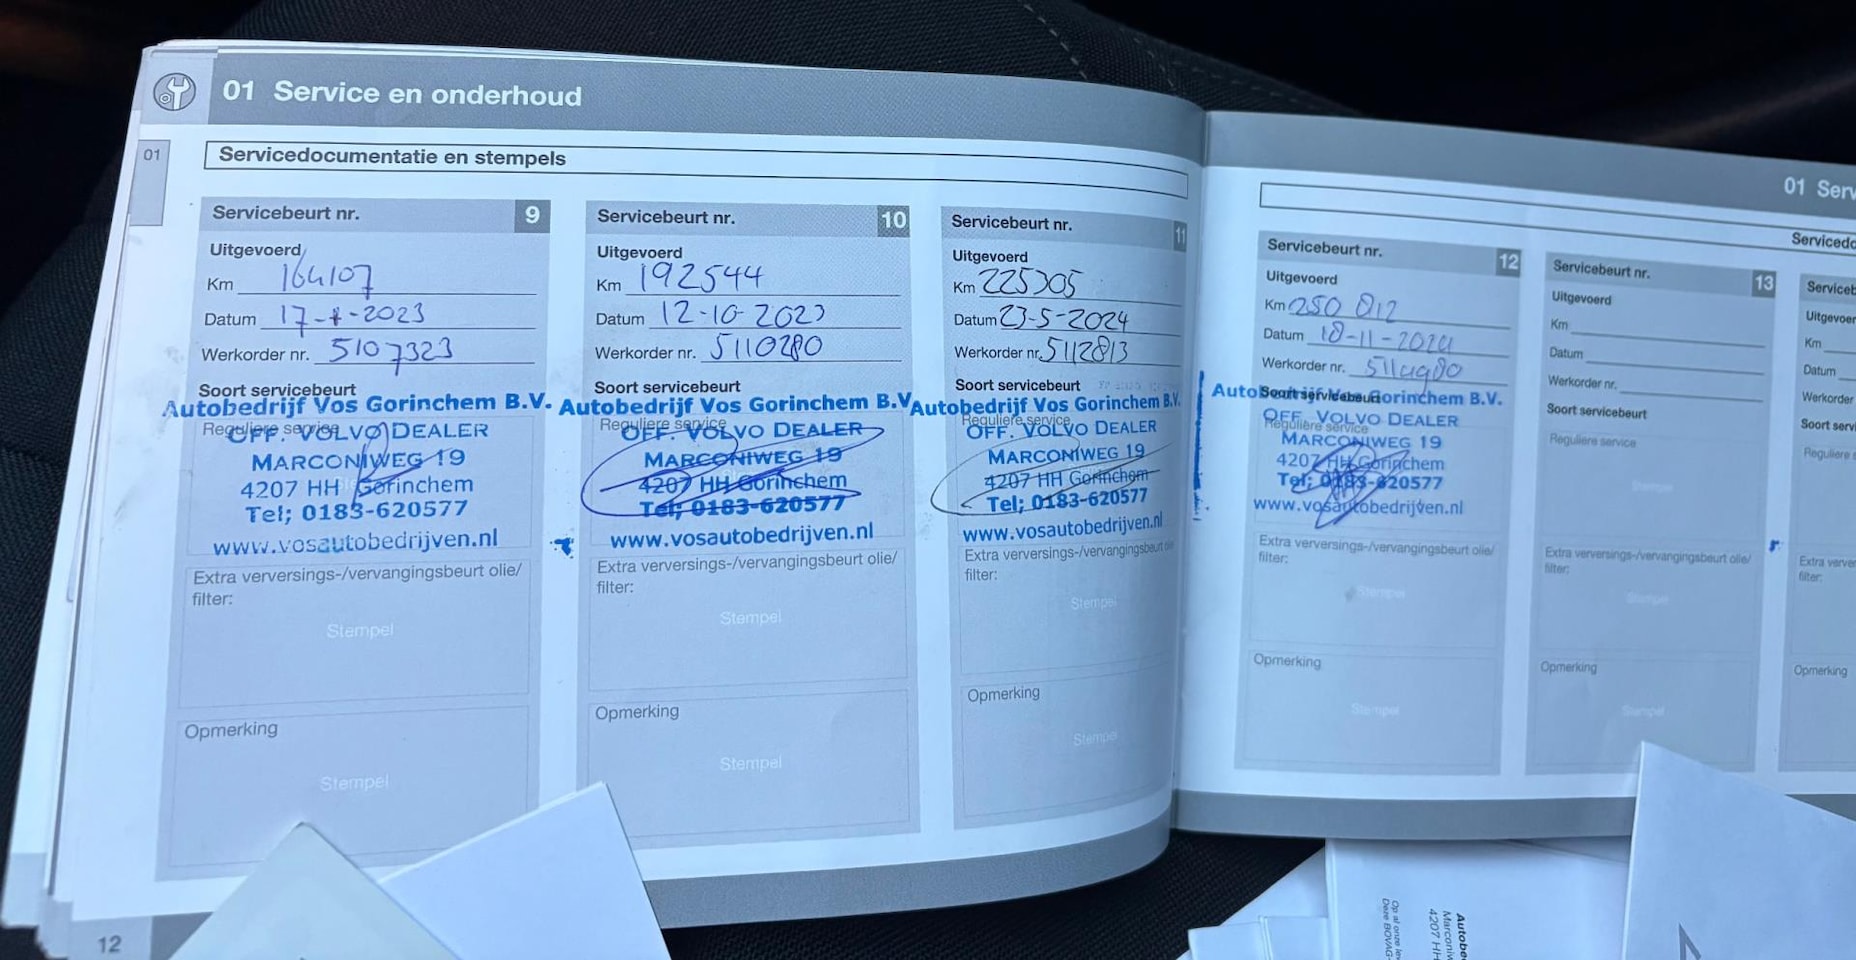 01 Service en onderhoud
01
Servicedocumentatie en stempels
Servicebeurt nr. 9
Uitgevoerd
Km 164107
Datum 17-4-2023
Werkorder nr. 5107323
Soort servicebeurt
Autobedrijf Vos Gorinchem B.V.
Reguliere service
OFF. VOLVO DEALER
MARCONIWEG 19
4207 HH Gorinchem
Tel; 0183-620577
www.vosautobedrijven.nl
Extra verversings-/vervangingsbeurt olie/
filter:
Stempel
Opmerking
Stempel
12
Servicebeurt nr. 10
Uitgevoerd
Km 192544
Datum 12-10-2023
Werkorder nr. 5110280
Soort servicebeurt
Autobedrijf Vos Gorinchem B.V.
Reguliere service
OFF. VOLVO DEALER
MARCONIWEG 19
4207 HH Gorinchem
Tel; 0183-620577
www.vosautobedrijven.nl
Extra verversings-/vervangingsbeurt olie/
filter:
Stempel
Opmerking
Stempel
Servicebeurt nr. 11
Uitgevoerd
Km 225305
Datum 23-5-2024
Werkorder nr. 5112813
Soort servicebeurt
Autobedrijf Vos Gorinchem B.V.
Reguliere service
OFF. VOLVO DEALER
MARCONIWEG 19
4207 HH Gorinchem
Tel; 0183-620577
www.vosautobedrijven.nl
Extra verversings-/vervangingsbeurt olie/
filter:
Stempel
Opmerking
Stempel
01 Serv
Servicedo
Servicebeurt nr. 12
Uitgevoerd
Km 250 812
Datum 18-11-2024
Werkorder nr.
Soort servicebeurt
Autobedrijf Vos Gorinchem B.V.
OFF. VOLVO DEALER
Reguliere service
MARCONIWEG 19
4207 HH Gorinchem
Tel; 0183-620577
www.vosautobedrijven.nl
Extra verversings-/vervangingsbeurt olie/
filter:
Stempel
Opmerking
Stempel
Servicebeurt nr. 13
Uitgevoerd
Km
Datum
Werkorder nr.
Soort servicebeurt
Reguliere service
Stempel
Extra verversings-/vervangingsbeurt olie/
filter:
Stempel
Opmerking
Stempel
Serviceb
Uitgevoer
Km
Datum
Werkorder
Soort servi
Reguliere s
Extra verver
filter:
Opmerking
Autobe
Marconiw
4207 HH
Op al onze lev
Deze BOVAG-